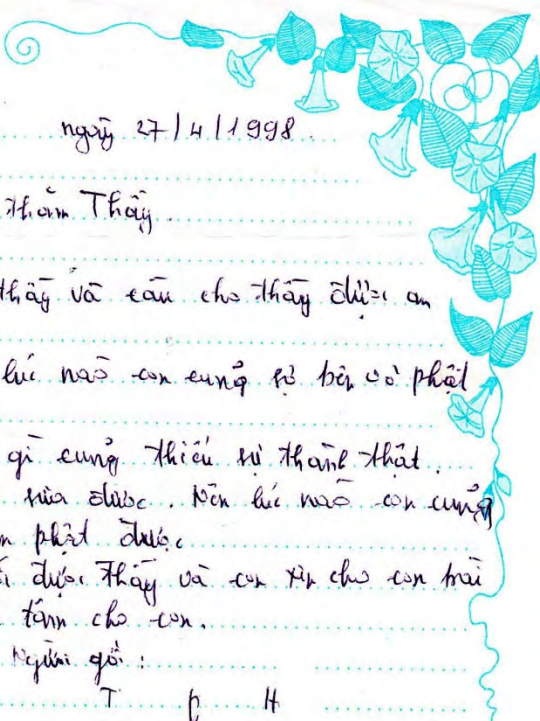 ngày 27/4/1998.
thăm Thầy.
thầy và cầu cho thầy được an
lúc nào con cung sợ bên phật
gì cung thiếu sự thành thật.
sửa được. Nên lúc nào con cung
phật được
được thầy và con xin cho con trai
tâm cho con.
Người gởi:
T P H